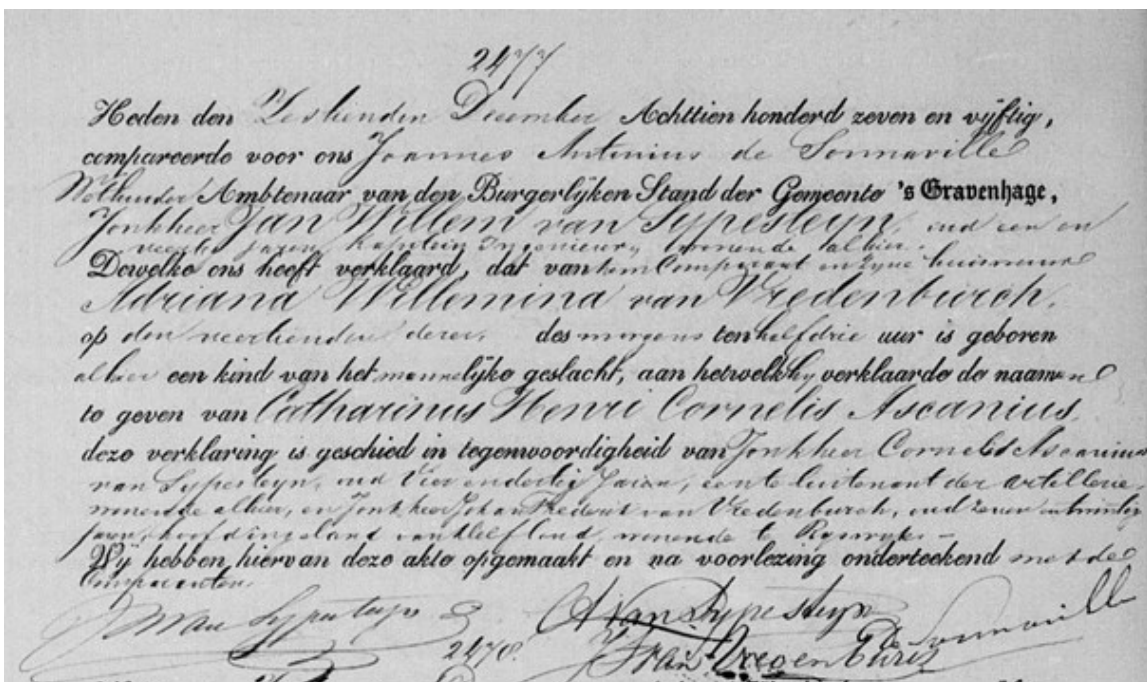 2477
Heden den Zestienden December Achttien honderd zeven en vijftig,
compareerde voor ons Joannes Antonius de Sonnaville
Wethouder Ambtenaar van den Burgerlijken Stand der Gemeente 's Gravenhage,
Jonkheer Jan Willem van Sypesteyn, oud een en
veertig jaren, kapitein Ingenieur, wonende alhier.
Dewelke ons heeft verklaard, dat van hem Comparant en zyne huisvrouw
Adriana Willemina van Vredenburch,
op den veertienden dezer, des morgens ten half drie uur is geboren
alhier een kind van het mannelijke geslacht, aan hetwelk hy verklaarde de naamen
te geven van Catharinus Henri Cornelis Ascanius,
deze verklaring is geschied in tegenwoordigheid van Jonkheer Cornelis Ascanius
van Sypesteyn, oud Vier en dertig Jaren, eerste luitenant der artillerie,
wonende alhier, en Jonkheer Johan Frederik van Vredenburch, oud zeven en twintig
jaren, hoofdingeland van Delfland, wonende te Ryswyk. –
Wij hebben hiervan deze akte opgemaakt en na voorlezing onderteekend met de
Comparanten.
JW van Sypesteyn CA van Sypesteyn
de Sonnaville
2478. van Vredenburch